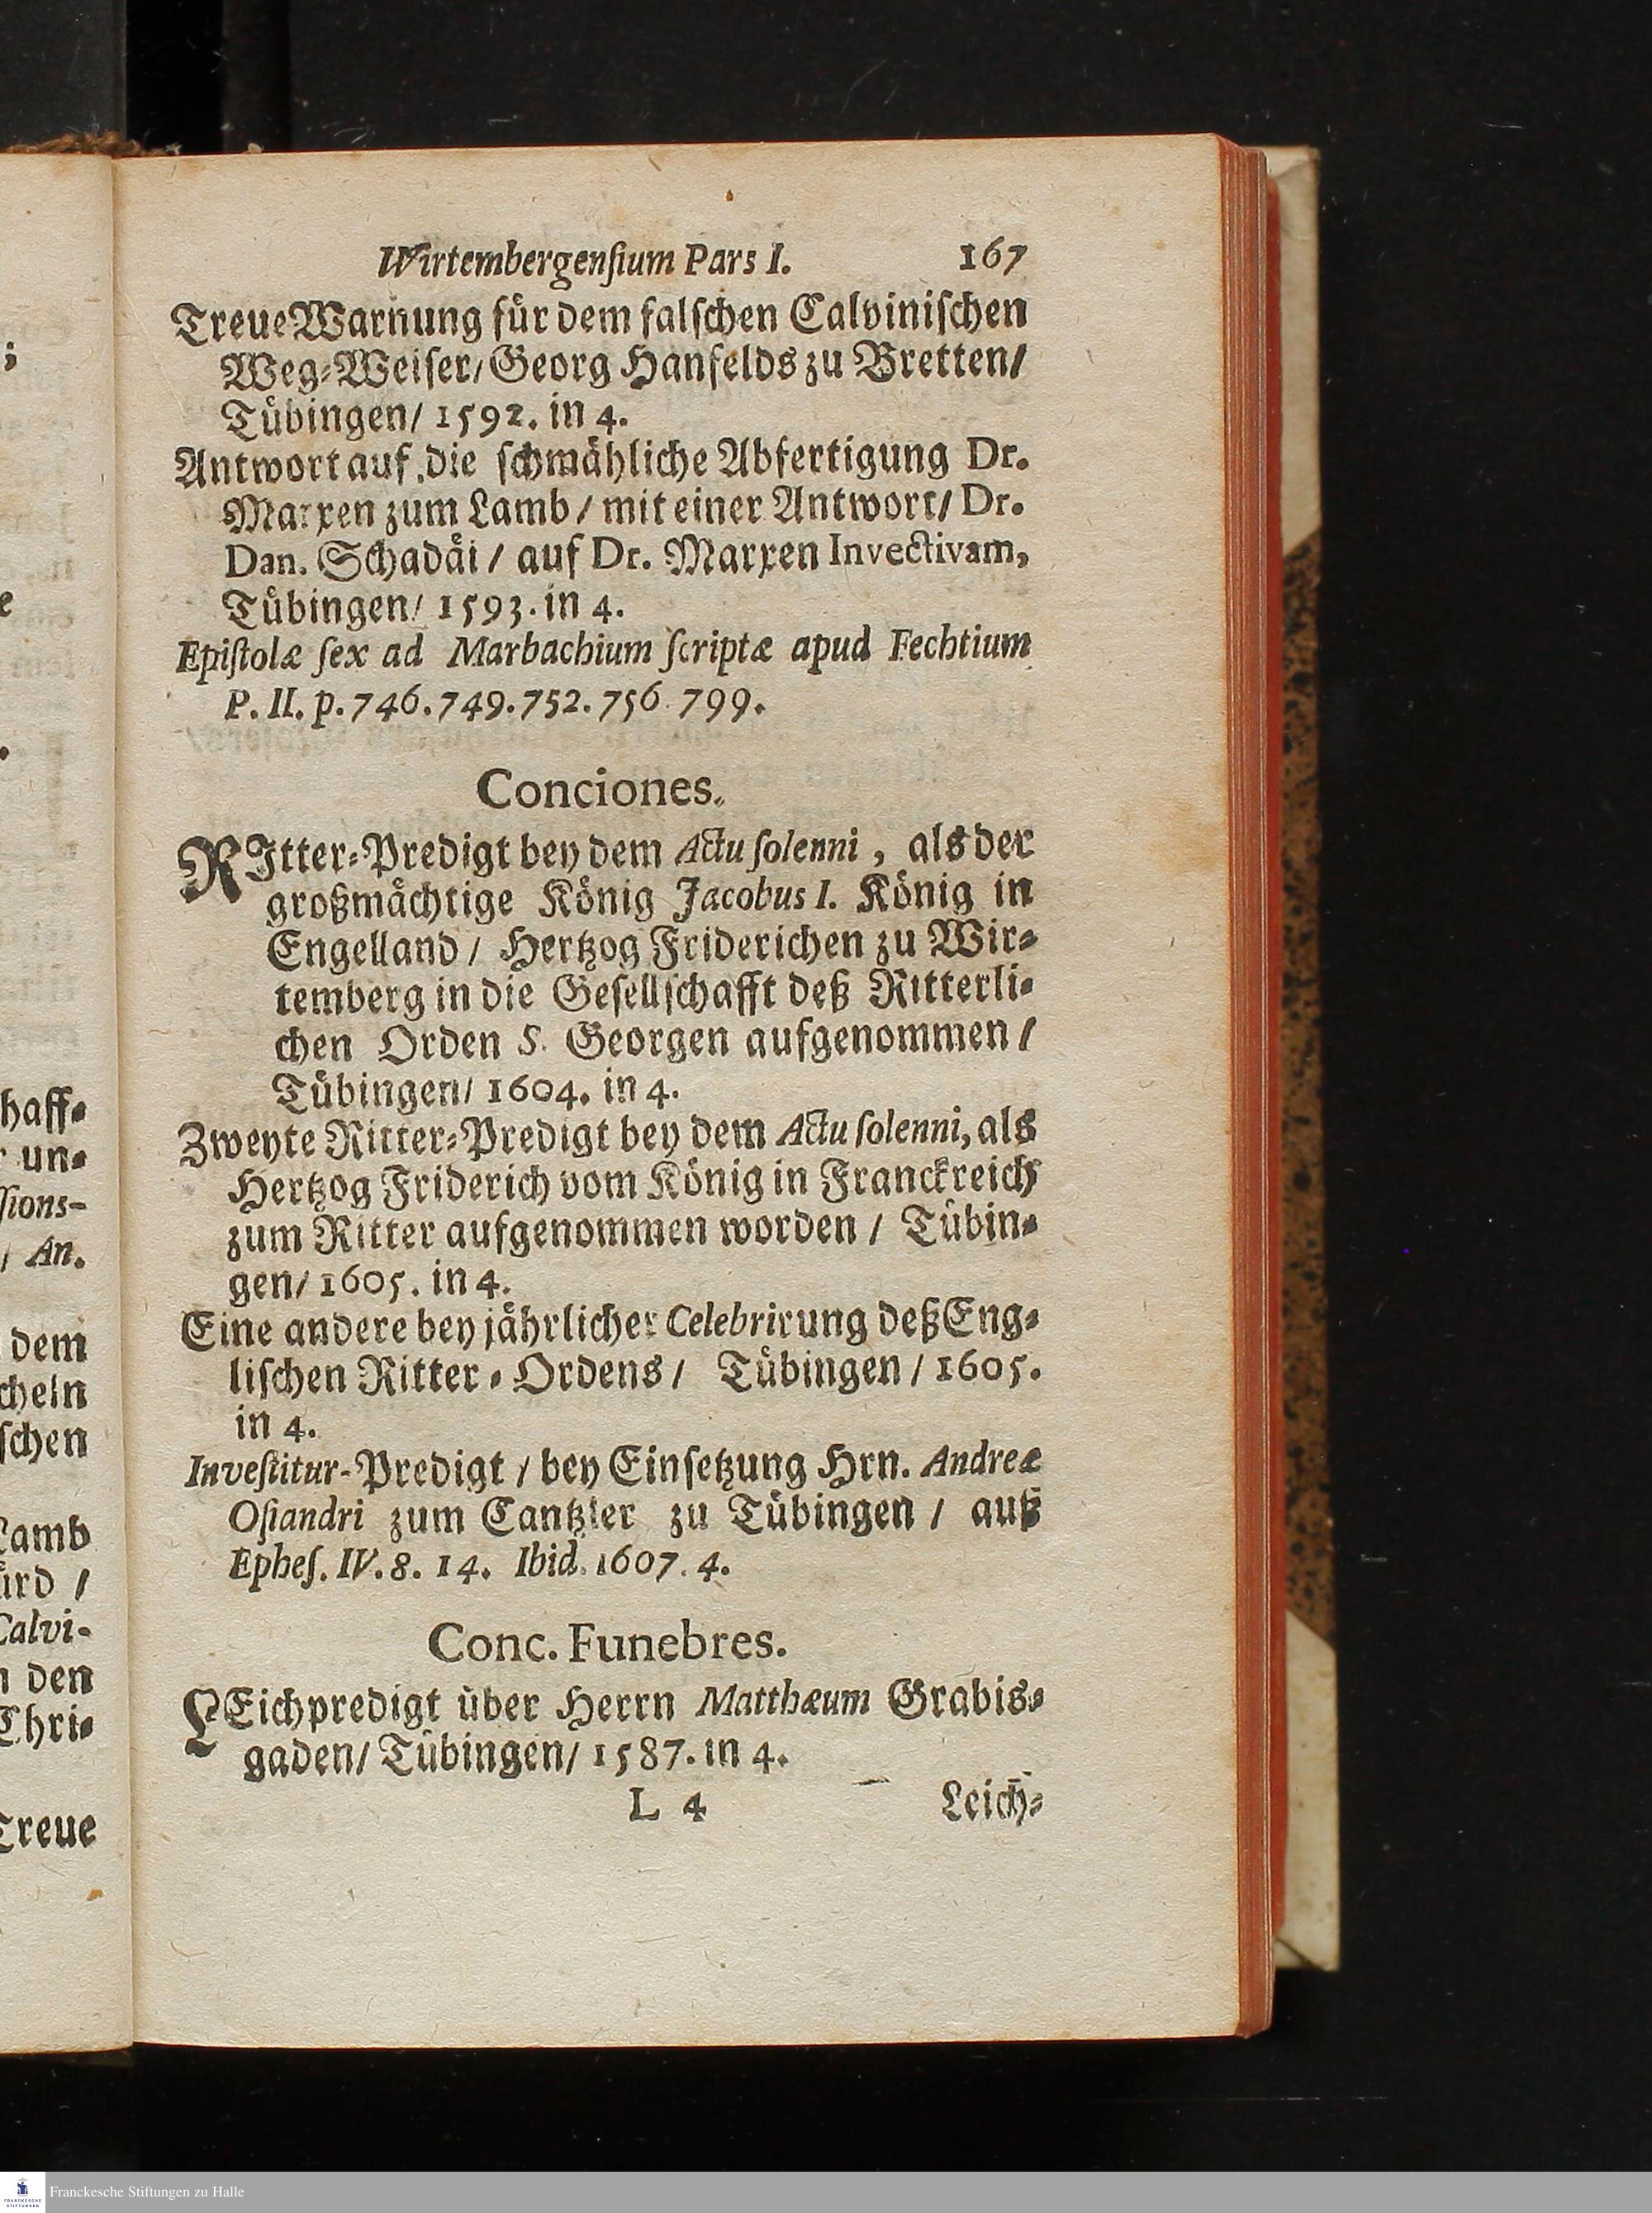 ;
e
.
haff⸗
r un⸗
ſſions-
/ An.
dem
cheln
ſchen
Lamb
ürd /
Calvi-
n den
Chri⸗
Treue
Wirtembergenſium Pars I. 167
Treue Warnung für dem falſchen Calviniſchen
Weg⸗Weiſer/ Georg Hanfelds zu Bretten/
Tübingen/ 1592. in 4.
Antwort auf die ſchmähliche Abfertigung Dr.
Marxen zum Lamb / mit einer Antwort/ Dr.
Dan. Schadäi / auf Dr. Marxen Invectivam,
Tübingen/ 1593. in 4.
Epiſtolæ ſex ad Marbachium ſcriptæ apud Fechtium
P. II. p. 746. 749. 752. 756. 799.
Conciones.
RItter⸗Predigt bey dem Actu ſolenni, als der
großmächtige König Jacobus I. König in
Engelland / Hertzog Friderichen zu Wir⸗
temberg in die Geſellſchafft deß Ritterli⸗
chen Orden S. Georgen aufgenommen /
Tübingen/ 1604. in 4.
Zweyte Ritter⸗Predigt bey dem Actu ſolenni, als
Hertzog Friderich vom König in Franckreich
zum Ritter aufgenommen worden / Tübin⸗
gen/ 1605. in 4.
Eine andere bey jährlicher Celebrirung deß Eng⸗
liſchen Ritter⸗Ordens / Tübingen / 1605.
in 4.
Inveſtitur-Predigt / bey Einſetzung Hrn. Andreæ
Oſiandri zum Cantzler zu Tübingen / auß
Epheſ. IV. 8. 14. Ibid. 1607. 4.
Conc. Funebres.
LEichpredigt über Herrn Matthæum Grabis⸗
gaden/ Tübingen/ 1587. in 4.
L 4 Leich⸗
FRANCKESCHE
STIFTUNGEN
Franckesche Stiftungen zu Halle